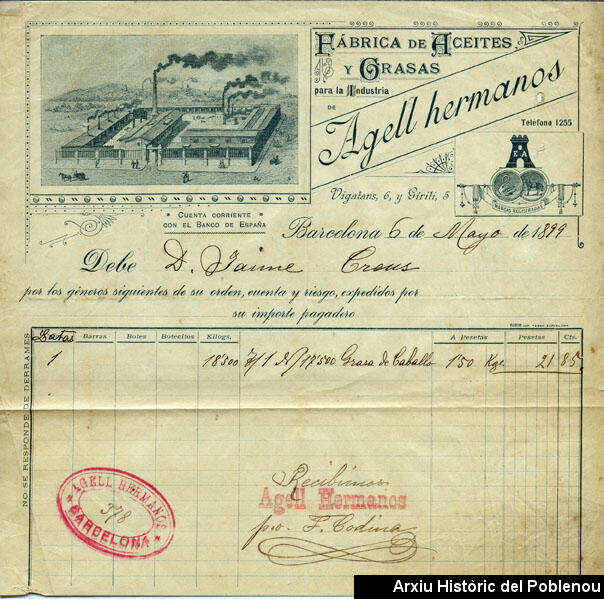 FÁBRICA DE ACEITES
Y GRASAS
para la Industria
DE
Agell hermanos
Teléfono 1255
E A
MARCAS REGISTRADAS
Vigatans, 6, y Giriti, 5
CUENTA CORRIENTE
CON EL BANCO DE ESPAÑA
Barcelona 6 de Mayo de 1899
Debe D. Jaime Creus
por los géneros siguientes de su orden, cuenta y riesgo, expedidos por
su importe pagadero
Latas Barras Botes Botecitos Kilogs. A Pesetas Pesetas Cts.
1 18500 B/1 N/ 17500 Grasa de Caballo 150 Kgs. 21 85
NO SE RESPONDE DE DERRAMES
Recibimos
Agell Hermanos
p.o. F. Codina
AGELL HERMANOS
378
BARCELONA
Arxiu Històric del Poblenou